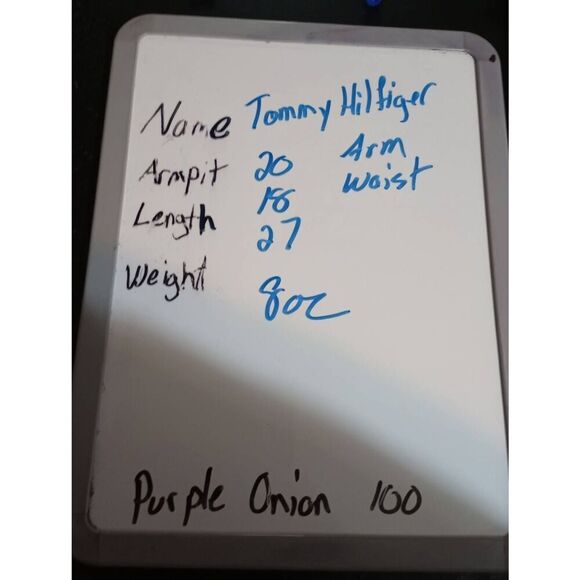 Name Tommy Hilfiger
Armpit 20 Arm
18 Waist
Length 27
Weight 8oz
Purple Onion 100